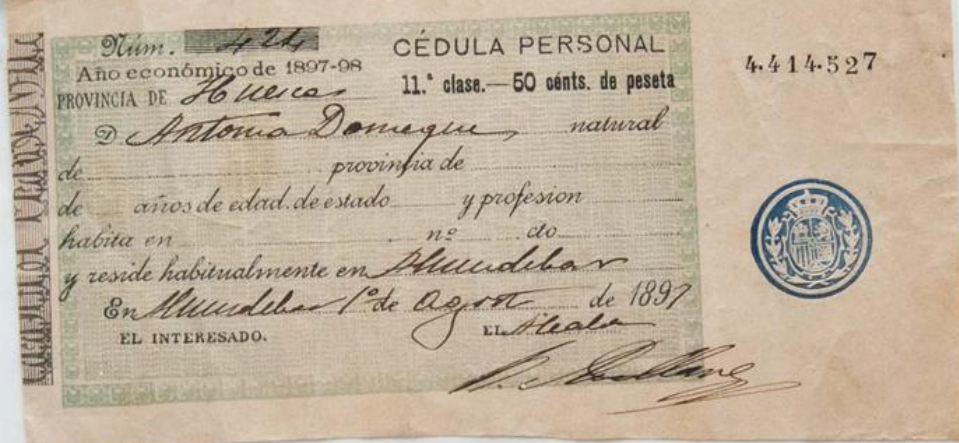 Núm. 424
CÉDULA PERSONAL
Año económico de 1897-98
11.ª clase.—50 cénts. de peseta
PROVINCIA DE Huesca
4.414.527
D Antonia Domeque natural
de provincia de
de años de edad, de estado y profesion
habita en nº cto
y reside habitualmente en Almudebar
En Almudebar 1º de Agost de 1897
EL INTERESADO.
EL Alcalde